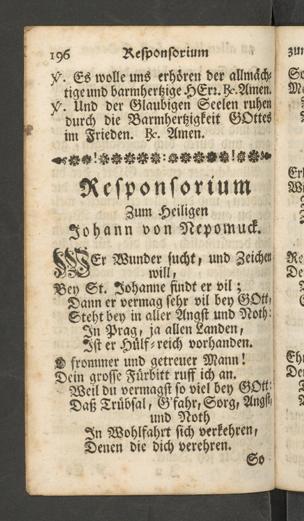 196 Responsorium
℣. Es wolle uns erhören der allmäch-
tige und barmhertzige HErr. ℟. Amen.
℣. Und der Glaubigen Seelen ruhen
durch die Barmhertzigkeit GOttes
im Frieden. ℟. Amen.
Responsorium
Zum Heiligen
Johann von Nepomuck.
WEr Wunder sucht, und Zeichen
will,
Bey St. Johanne findt er vil;
Dann er vermag sehr vil bey GOtt,
Steht bey in aller Angst und Noth:
In Prag, ja allen Landen,
Ist er Hülf-reich vorhanden.
O frommer und getreuer Mann!
Dein grosse Fürbitt ruff ich an.
Weil du vermagst so viel bey GOtt:
Daß Trübsal, G'fahr, Sorg, Angst,
und Noth
In Wohlfahrt sich verkehren,
Denen die dich verehren.
So